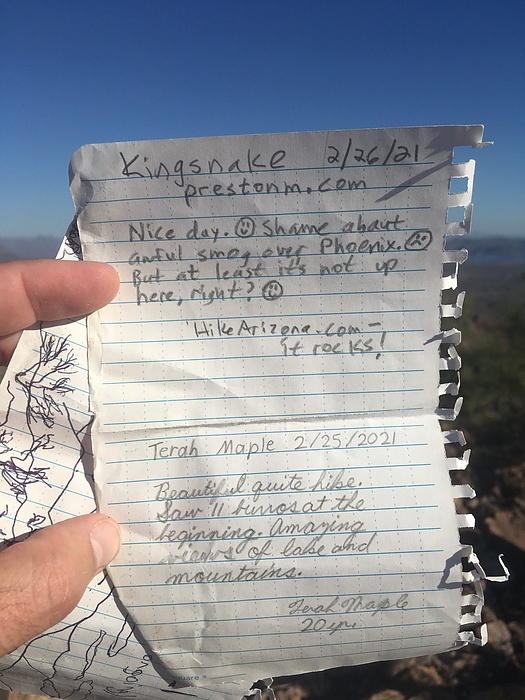 Kingsnake 2/26/21
prestonm.com
Nice day. Shame about
awful smog over Phoenix.
But at least it's not up
here, right?
HikeArizona.com -
it rocks!
Terah Maple 2/25/2021
Beautiful quite hike.
Saw 11 burros at the
beginning. Amazing
views of lake and
mountains.
Terah Maple